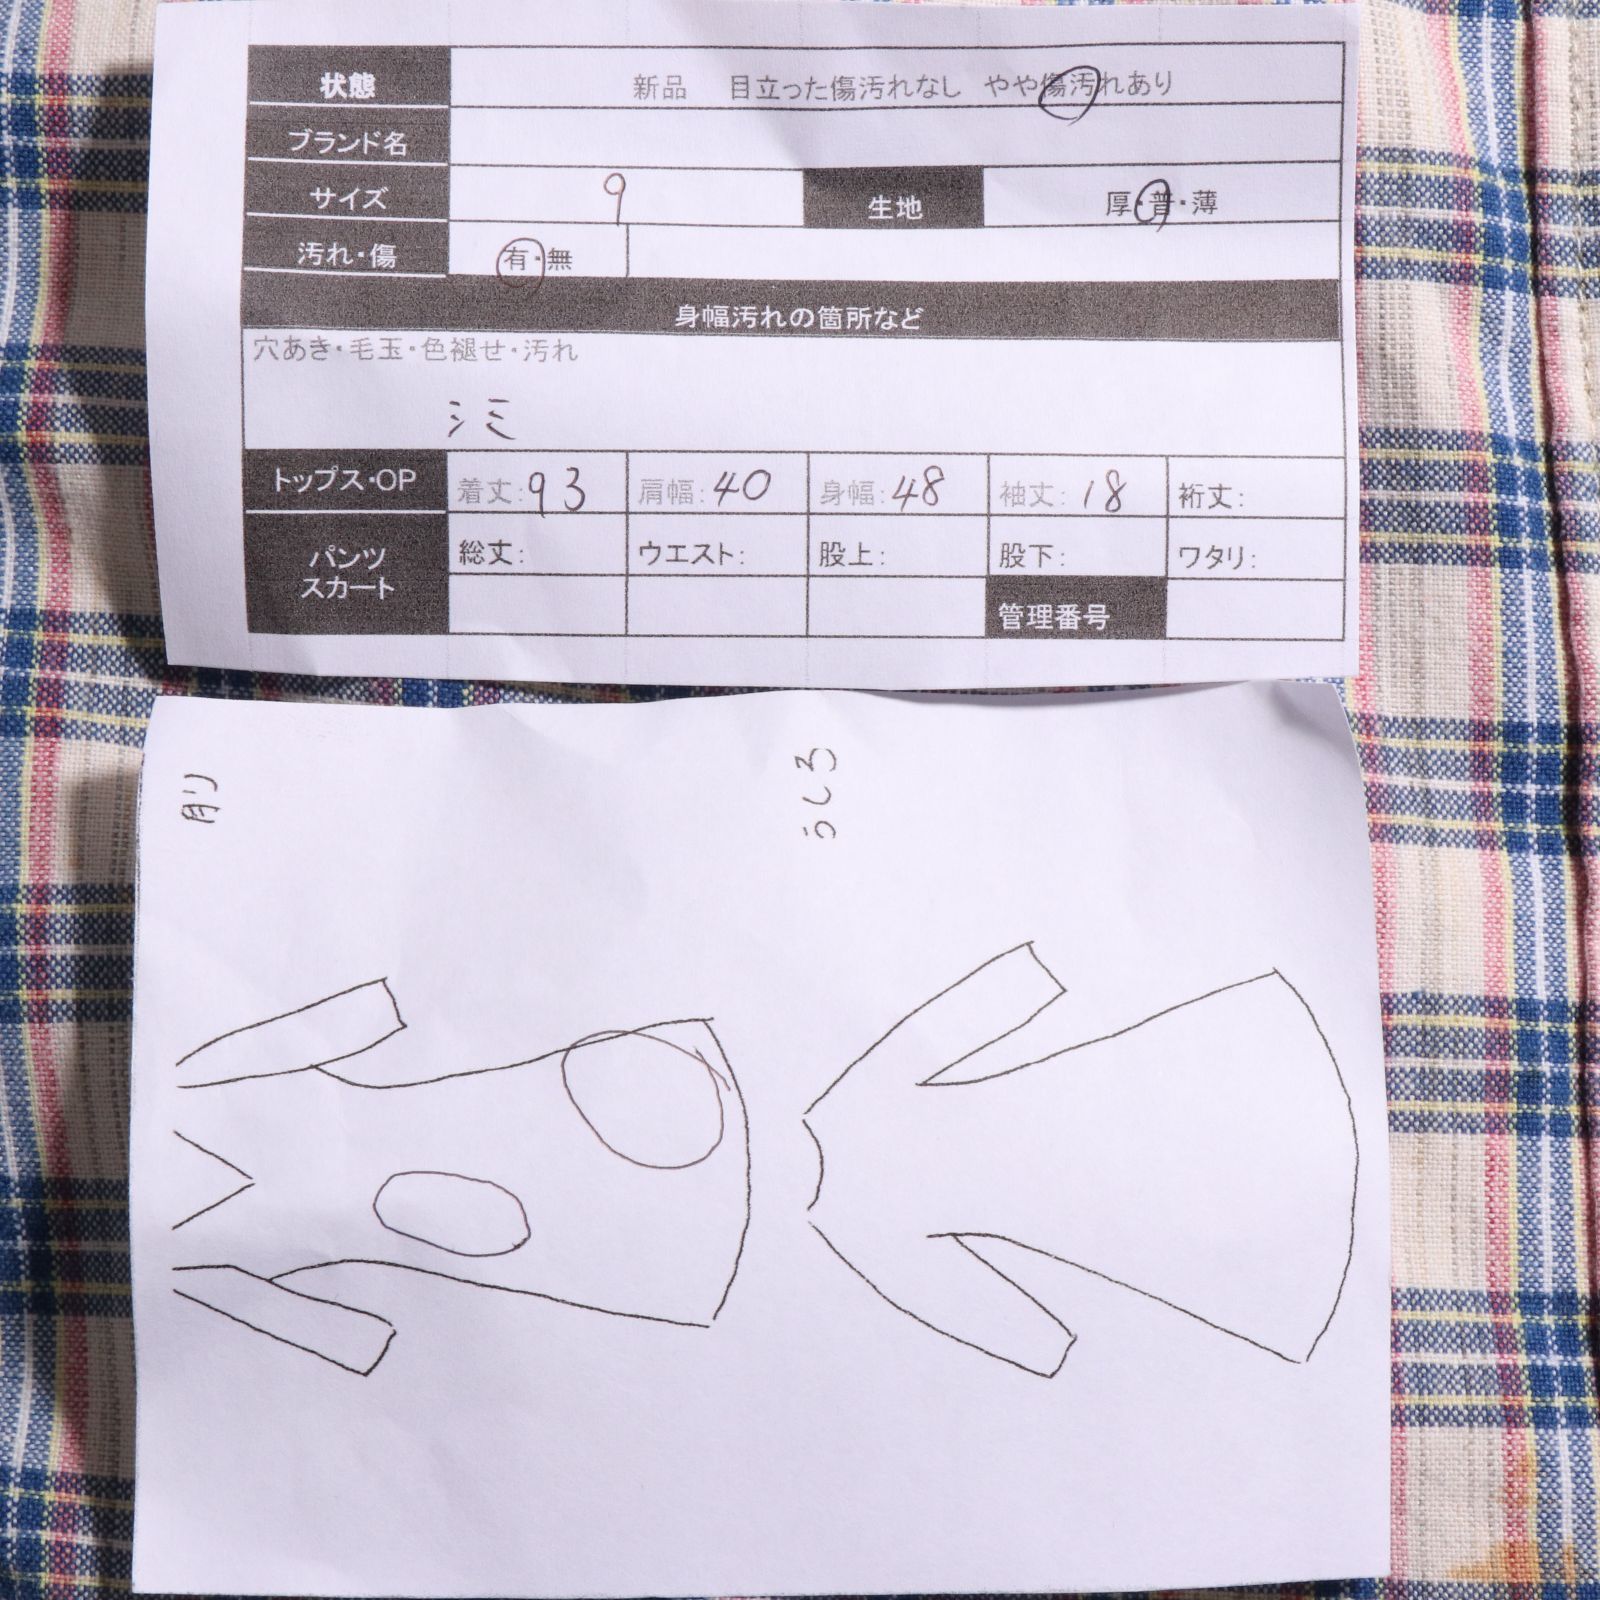 状態 新品 目立った傷汚れなし やや傷汚れあり
ブランド名
サイズ 9 生地 厚・普・薄
汚れ・傷 有・無
身幅汚れの箇所など
穴あき・毛玉・色褪せ・汚れ
シミ
トップス・OP 着丈:93 肩幅:40 身幅:48 袖丈:18 裄丈:
パンツ スカート 総丈: ウエスト: 股上: 股下: ワタリ:
管理番号
前
うしろ